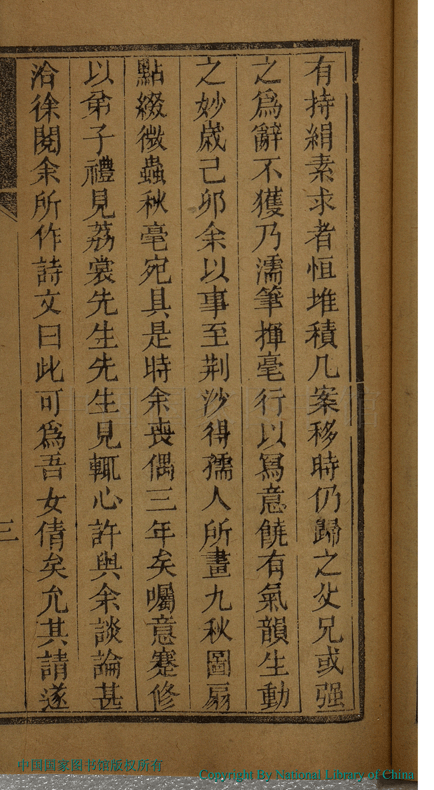 有持絹素求者恒堆積几案移時仍歸之父兄或强
之爲辭不獲乃濡筆揮毫行以寫意饒有氣韻生動
之妙歲己卯余以事至荆沙得孺人所畫九秋圖扇
點綴微蟲秋毫宛具是時余喪偶三年矣囑意蹇修
以弟子禮見荔裳先生先生見輒心許與余談論甚
洽徐閱余所作詩文曰此可爲吾女倩矣允其請遂
三
中国国家图书馆版权所有
Copyright By National Library of China